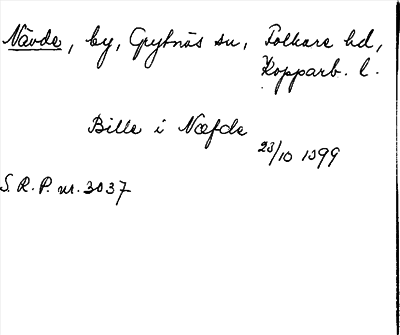 Nävde, by, Grytnäs sn, Folkare hd,
Kopparb. l.
Bille i Næfde
23/10 1399
S.R.P. nr. 3037